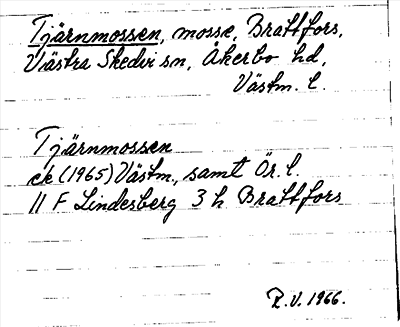 Tjärnmossen, mosse, Brattfors,
Västra Skedvi sn, Åkerbo hd,
Västm. l.
Tjärnmossen
ek (1965) Västm., samt Ör. l.
11 F Lindesberg 3 h Brattfors
R.V. 1966.